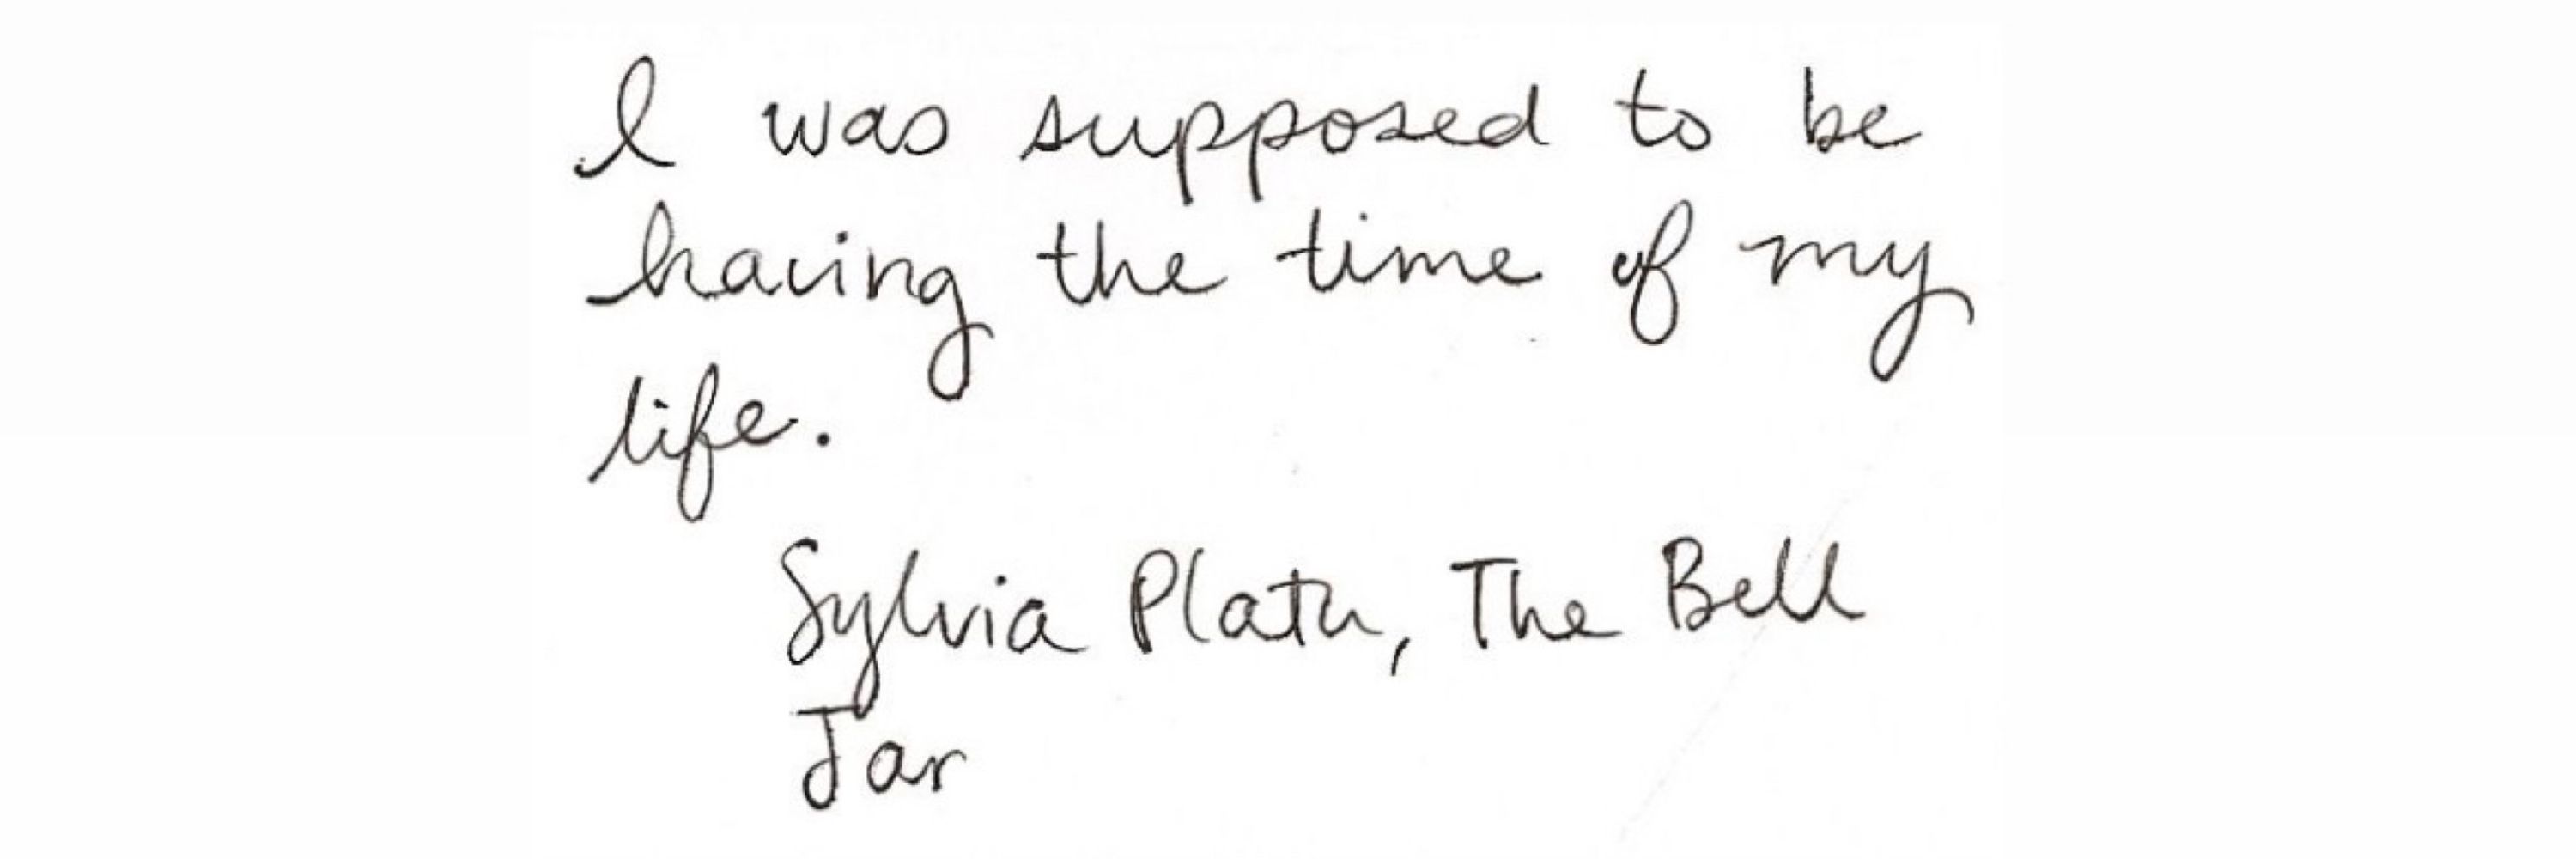 I was supposed to be
having the time of my
life.
Sylvia Plath, The Bell
Jar